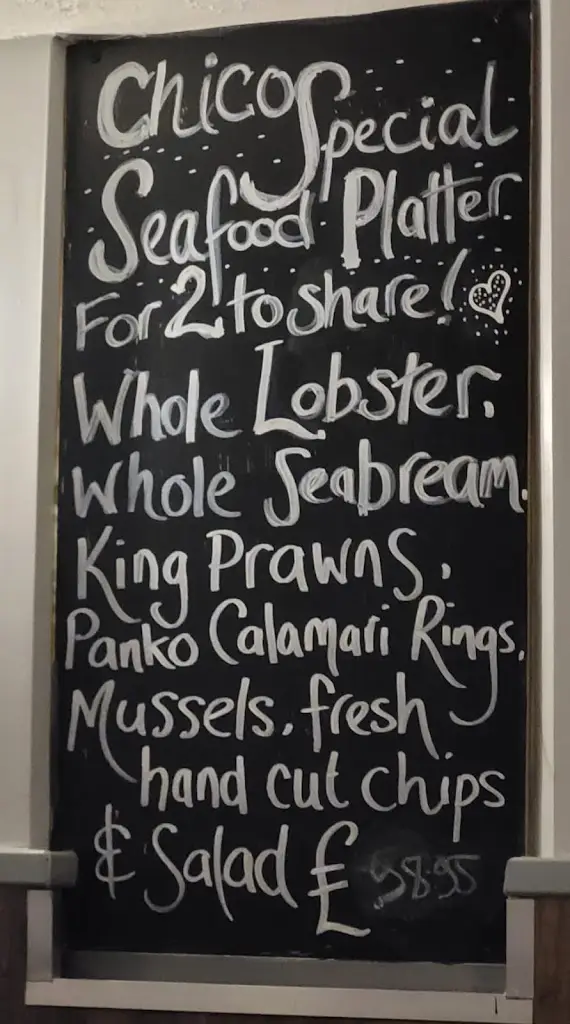 Chicos Special
Seafood Platter
For 2 to share!
Whole Lobster,
Whole Seabream,
King Prawns,
Panko Calamari Rings,
Mussels, fresh
hand cut chips
& Salad £